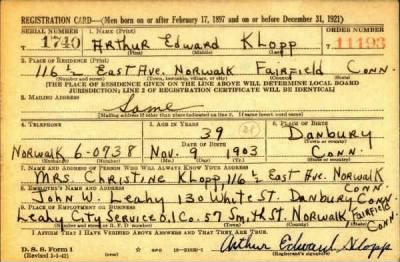 REGISTRATION CARD—(Men born on or after February 17, 1897 and on or before December 31, 1921)
SERIAL NUMBER 1. NAME (Print) ORDER NUMBER
1740 Arthur Edward Klopp 11193
(First) (Middle) (Last)
2. PLACE OF RESIDENCE (Print)
116 ½ East Ave. Norwalk Fairfield Conn.
(Number and street) (Town, township, village, or city) (County) (State)
[THE PLACE OF RESIDENCE GIVEN ON THE LINE ABOVE WILL DETERMINE LOCAL BOARD
JURISDICTION; LINE 2 OF REGISTRATION CERTIFICATE WILL BE IDENTICAL]
3. MAILING ADDRESS
Same
(Mailing address if other than place indicated on line 2. If same insert word same)
4. TELEPHONE 5. AGE IN YEARS 6. PLACE OF BIRTH
39 Danbury
DATE OF BIRTH (Town or county)
Norwalk 6-0738 Nov. 9 1903 Conn.
(Exchange) (Number) (Mo.) (Day) (Yr.) (State or country)
7. NAME AND ADDRESS OF PERSON WHO WILL ALWAYS KNOW YOUR ADDRESS
Mrs. Christine Klopp, 116 ½ East Ave. Norwalk Conn.
8. EMPLOYER'S NAME AND ADDRESS
John W. Leahy 130 White St. Danbury Conn.
9. PLACE OF EMPLOYMENT OR BUSINESS
Leahy City Service Oil Co. 57 Smith St. Norwalk Fairfield Conn.
(Number and street or R. F. D. number) (Town) (County) (State)
I AFFIRM THAT I HAVE VERIFIED ABOVE ANSWERS AND THAT THEY ARE TRUE.
D. S. S. Form 1 Arthur Edward Klopp
(Registrant's signature)